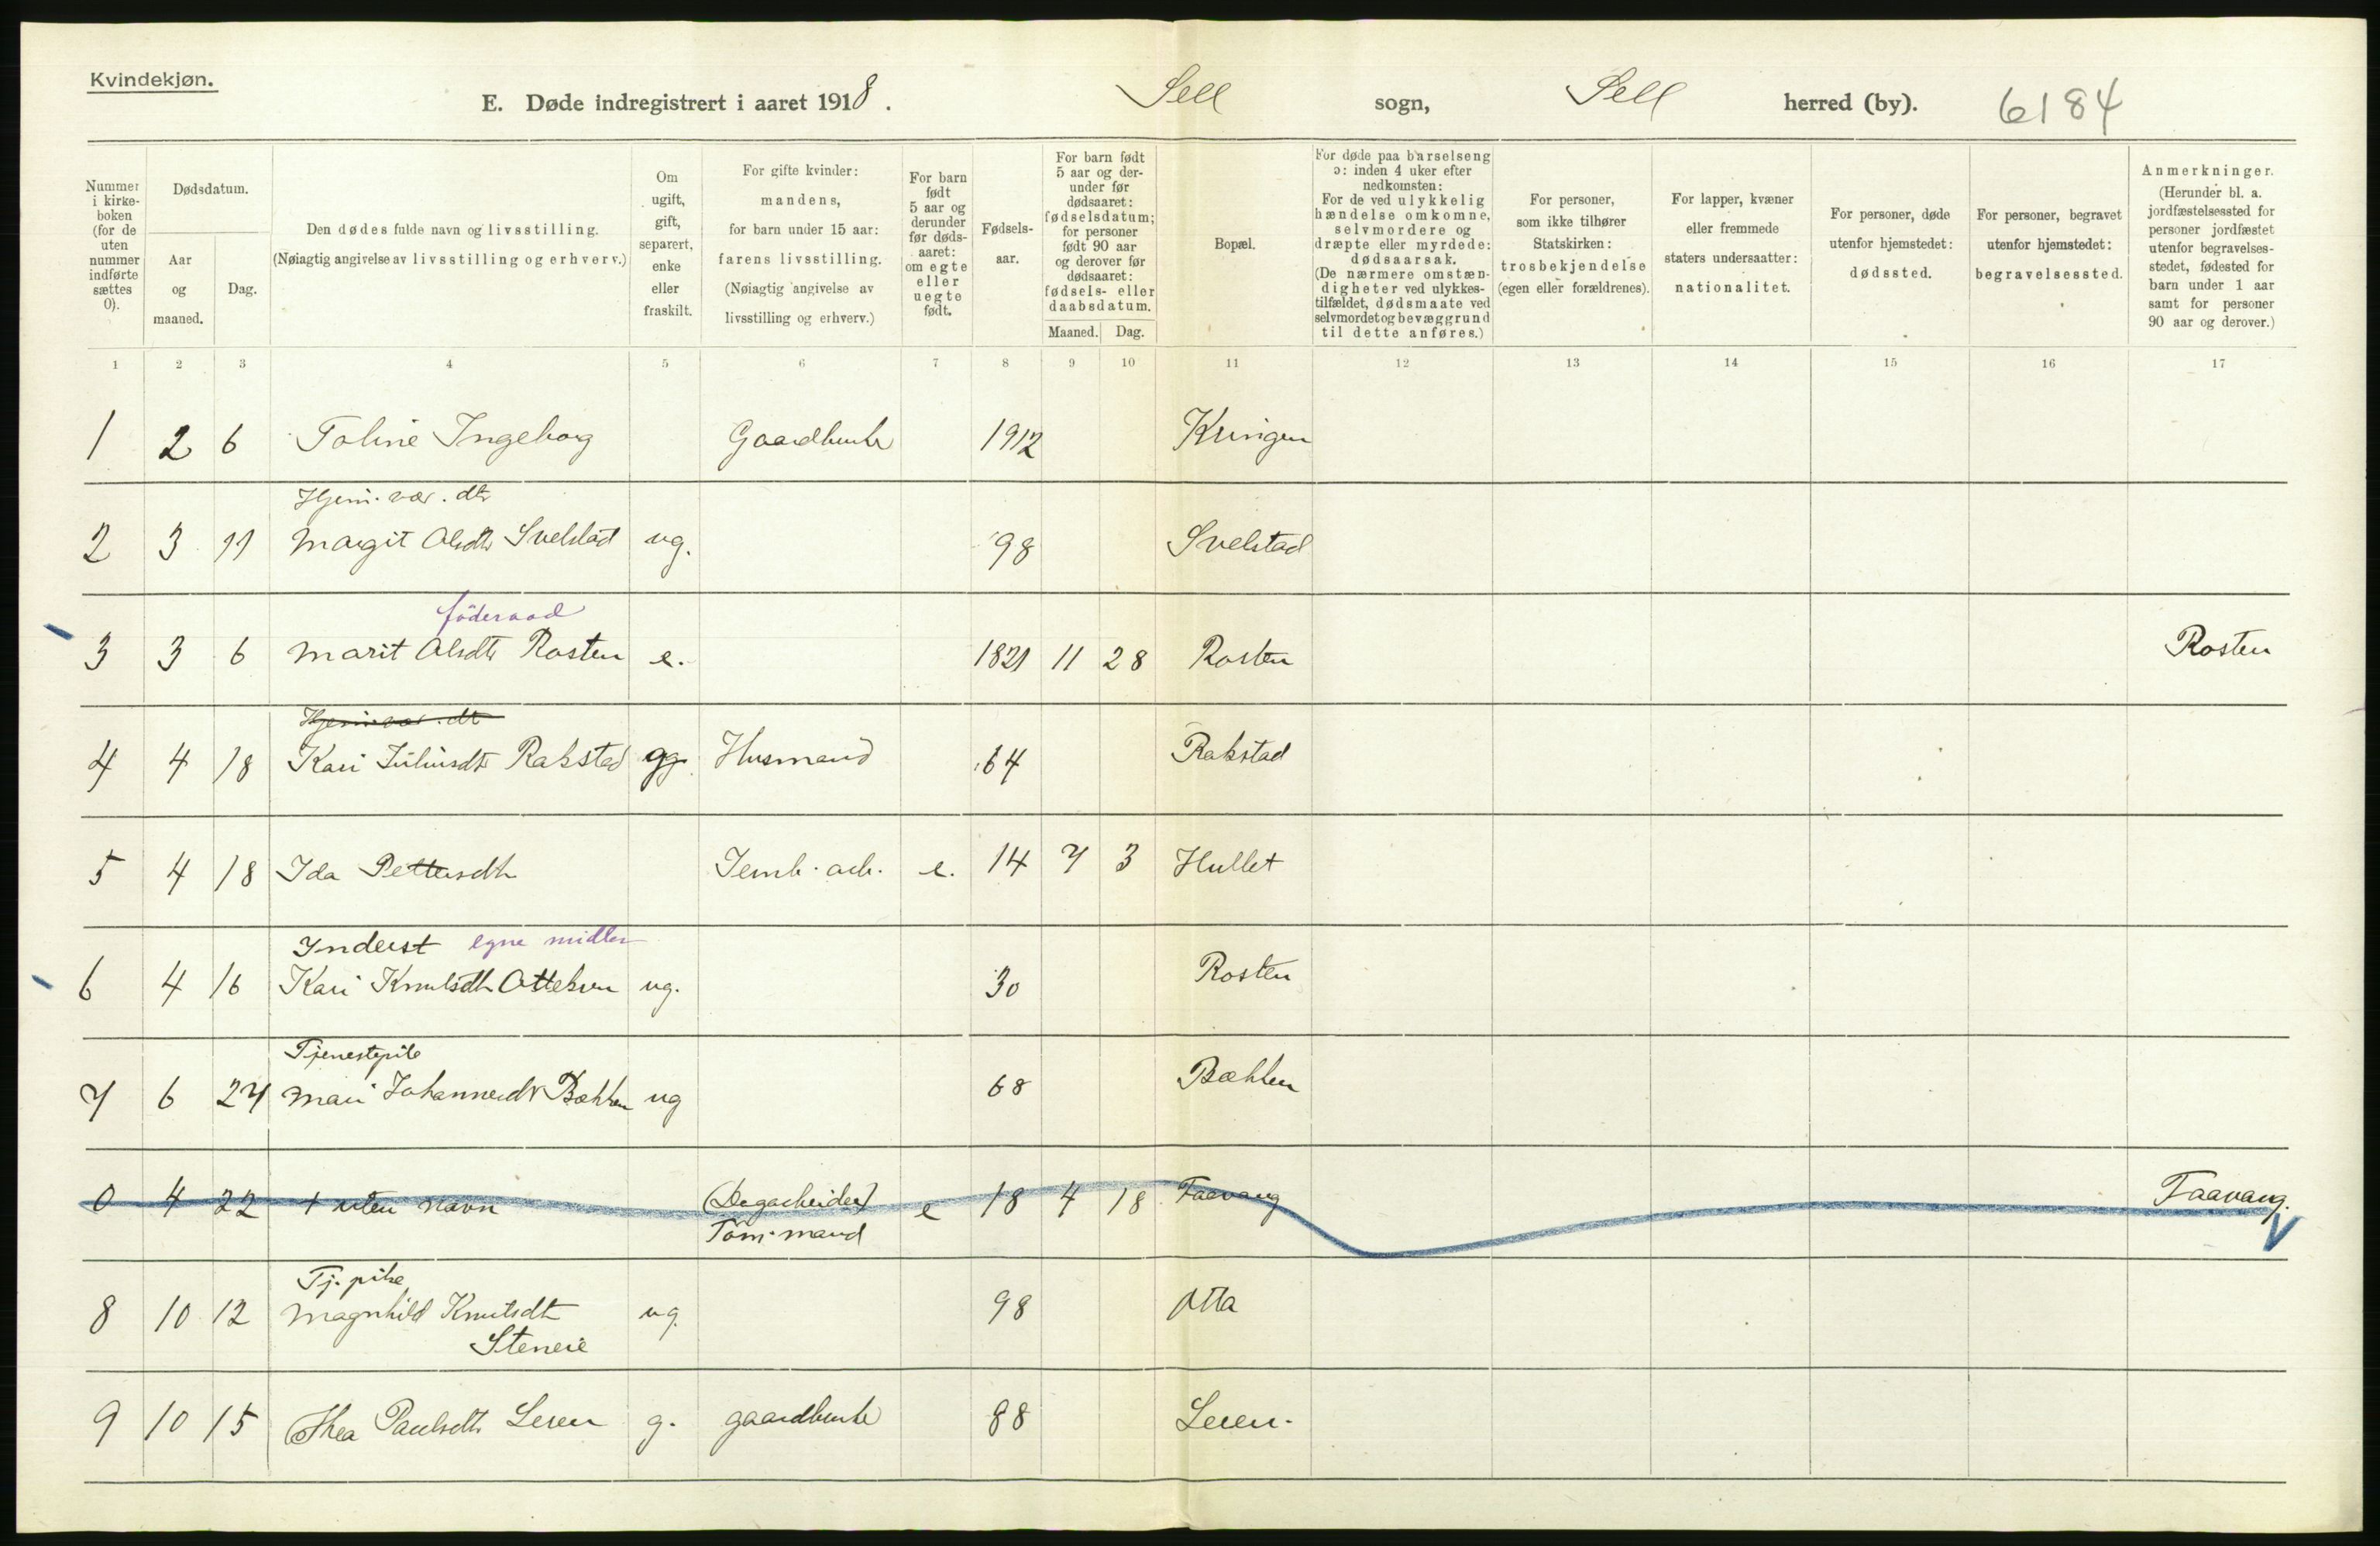 Kvindekjøn.
E. Døde indregistrert i aaret 1918. Sell sogn, Sell herred (by). 6184
Nummer i kirkeboken (for de uten nummer indførte sættes 0).
Dødsdatum.
Aar og maaned.
Dag.
Den dødes fulde navn og livsstilling.
(Nøiagtig angivelse av livsstilling og erhverv.)
Om ugift, gift, separert, enke eller fraskilt.
For gifte kvinder: mandens, for barn under 15 aar: farens livsstilling. (Nøiagtig angivelse av livsstilling og erhverv.)
For barn født 5 aar og derunder før dødsaaret: om egte eller uegte født.
Fødselsaar.
For barn født 5 aar og derunder før dødsaaret: fødselsdatum; for personer født 90 aar og derover før dødsaaret: fødsels- eller daabsdatum.
Maaned. Dag.
Bopæl.
For døde paa barselseng ɔ: inden 4 uker efter nedkomsten: For de ved ulykkelig hændelse omkomne, selvmordere og dræpte eller myrdede: dødsaarsak. (De nærmere omstændigheter ved ulykkestilfældet, dødsmaate ved selvmordet og bevæggrund til dette anføres.)
For personer, som ikke tilhører Statskirken: trosbekjendelse (egen eller forældrenes).
For lapper, kvæner eller fremmede staters undersaatter: nationalitet.
For personer, døde utenfor hjemstedet: dødssted.
For personer, begravet utenfor hjemstedet: begravelsessted.
Anmerkninger. (Herunder bl. a. jordfæstelsessted for personer jordfæstet utenfor begravelsesstedet, fødested for barn under 1 aar samt for personer 90 aar og derover.)
1 2 3 4 5 6 7 8 9 10 11 12 13 14 15 16 17
1 2 6 Toline Ingeborg Gaardbruk 1912 Kringen
Hjem. vær. dtr
2 3 11 Margit Olsdtr Svelstad ug. 98 Svelstad
föderaad
3 3 6 Marit Olsdtr Rosten e. 1821 11 28 Rosten Rosten
Hjem. vær. dt
4 4 18 Kari Juliusdtr Rakstad g. Husmand 64 Rakstad
5 4 18 Ida Pettersdtr Jernb. arb. e. 14 7 3 Hullet
Inderst egne midler
6 4 16 Kari Knutsdtr Ottekren ug. 30 Rosten
Tjenestepike
7 6 27 Mari Johannesdtr Bakken ug 68 Bakken
0 4 22 + uten navn (Dagarbeider) e 18 4 18 Faavang Faavang.
Tøm. mand
Tj. pike
8 10 12 Magnhild Knutsdtr ug. 98 Otta
Steneie
9 10 15 Thea Paulsdtr Leren g. gaardbruk 88 Leren.